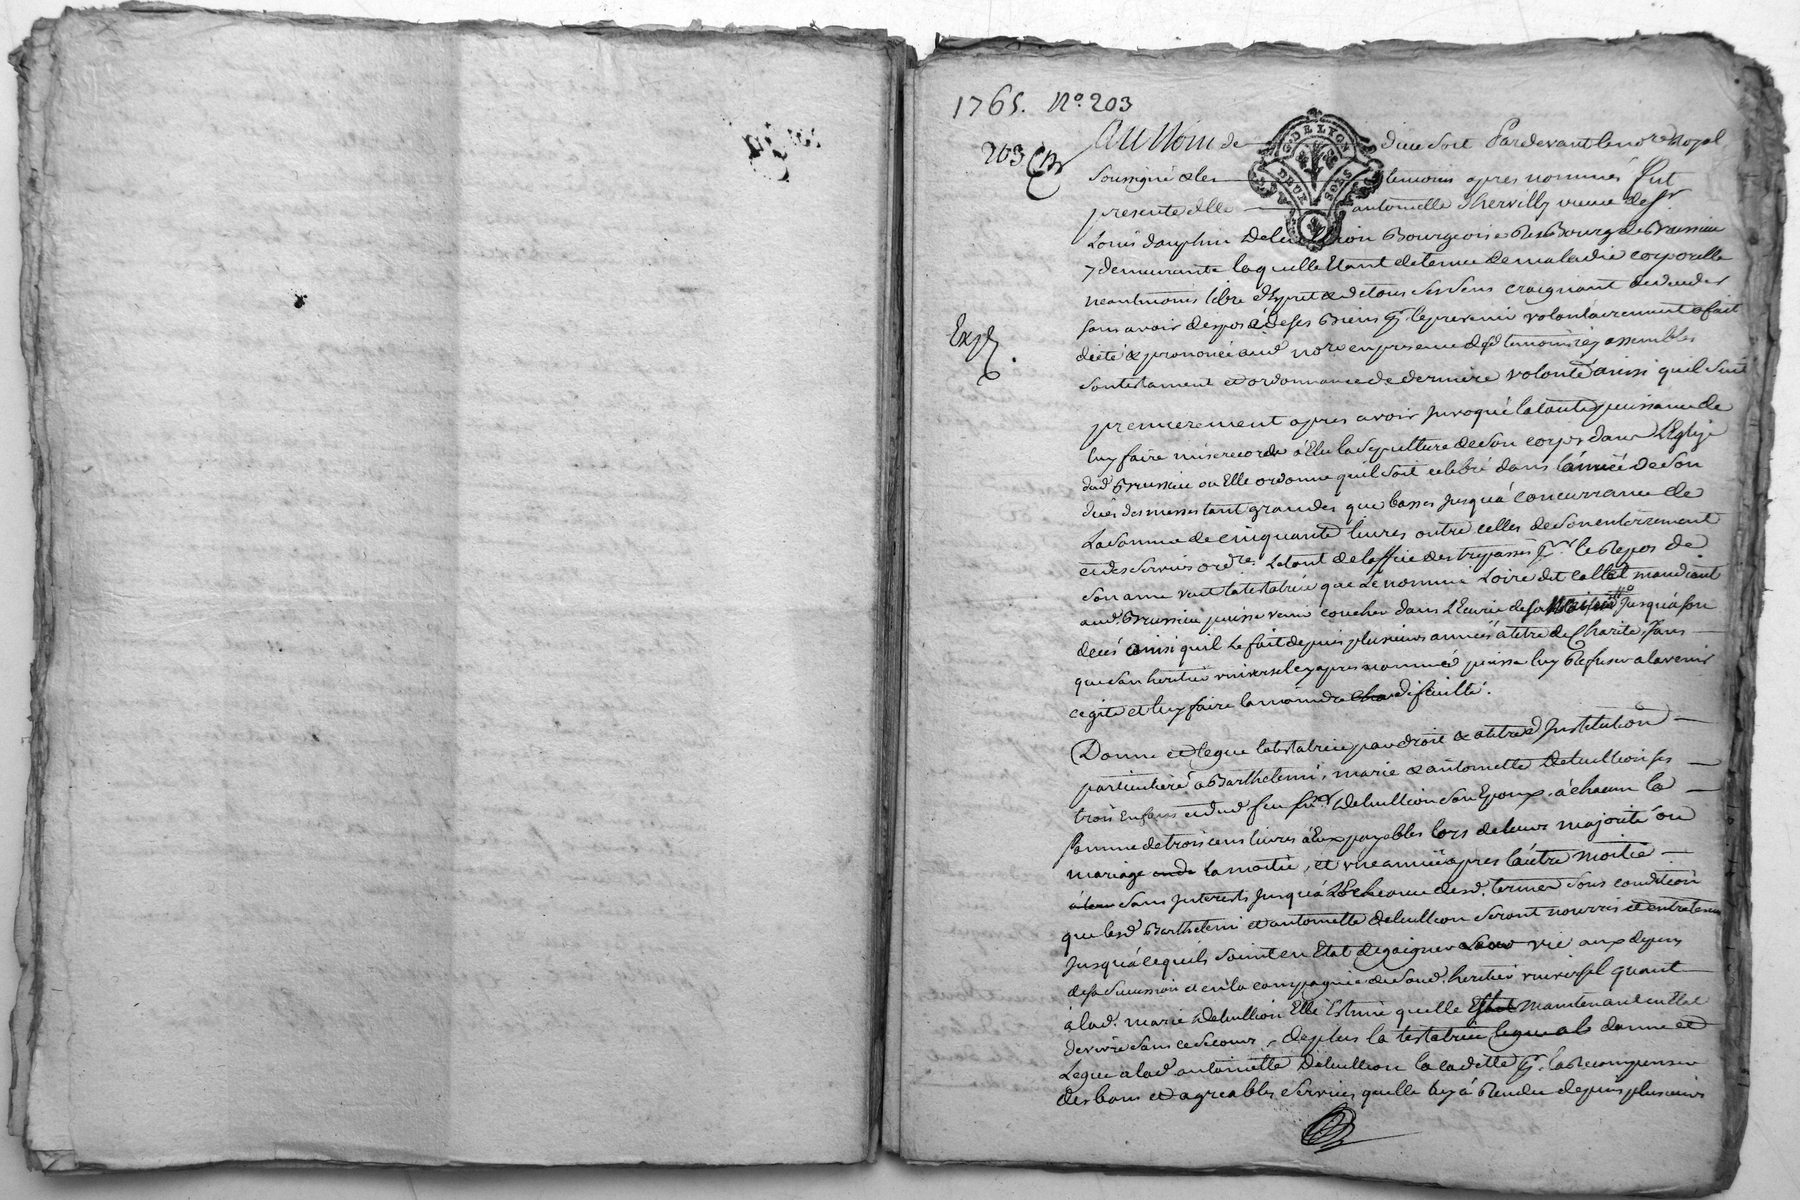 1765. N.o 203
203
Au Nom de dieu Soit Pardevant le no.re Royal
G. DE LYON
DEUX SOLS
Soussigné & les temoins apres nommés fut
presente d.lle antoinette Chervilly veuve de S.r
Louis dauphin Debullion Bourgeoise du Bourg de Brussieu
y demeurante laquelle Etant detenue de maladie corporelle
neantmoins libre d'Esprit & de tous ses sens craignant de deceder
Exp.
sans avoir disposé de ses Biens p.r le prevenir volontairement a fait
dicté & prononcé aud. no.re en presence desd. temoins icy assemblés
son testament et ordonnance de derniere volonté ainsi quil suit
premierement apres avoir Invoqué la toute puissance de
luy faire misericorde a Elu la sepulture de son corps dans L'Eglise
dud. Brussieu ou Elle ordonne quil soit celebré dans l'année de son
décés des messes tant grandes que basses Jusqu'a concurrance de
La Somme de cinquante livres outre celles de son enterrement
et des services ord.res Le tout de l'office des trepassés p.r le Repos de
son ame veut la testatrice que Le nommé Loire dit mandiant
aud. Brussieu puisse venir coucher dans L'Ecurie de sa Jusqu'a son
décés ainsi quil Le fait depuis plusieurs années a titre de Charité, sans
que son heritier universel cy apres nommé puisse luy Refuser a l'avenir
ce gite et luy faire la moindre difficulté.
Donne et Legue la testatrice par droit & a titre d'Institution
particuliere a Barthelemi, marie & antoinette Debullion ses
trois Enfans et dud. feu Debullion son Epoux, à chacun la
somme de trois cens livres a Eux payables lors de leurs majorité ou
mariage La moitié, et une année apres l'autre moitié
sans Interests Jusqu'a L'Echeance desd. termes sous condition
que lesd. Barthelemi et antoinette debullion seront nourris et entretenus
Jusqu'a ce quils soint en Etat de gaigner Leur vie aux depens
de sa succession et en la compagnie de sond. heritier universel quant
a lad. marie Debullion Elle Estime quelle Maintenant en Etat
de vivre sans ce secours, de plus la testatrice donne et
Legue a lad. antoinette Debullion la cadette p.r la Recompenser
des bons et agreables services quelle luy a Rendu depuis plusieurs